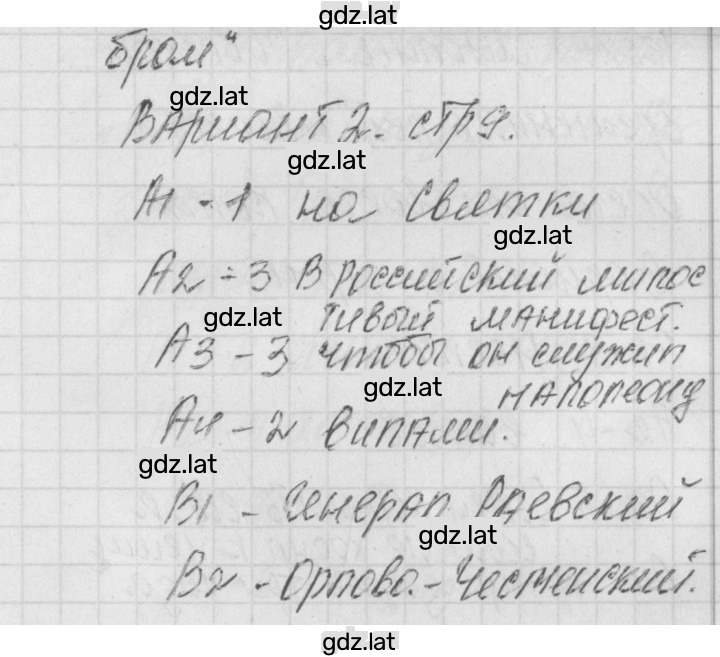 gdz.lat
бром"
gdz.lat
Вариант 2. стр 9.
gdz.lat
А1 - 1 на Святки
gdz.lat
А2 - 3 В Российский милос
gdz.lat
тивый манифест.
А3 - 3 чтобы он служил
gdz.lat
Наполеону
А4 - 2 вилами.
gdz.lat
В1 - Генерал Раевский
gdz.lat
В2 - Орлово.-Чесменский.
gdz.lat